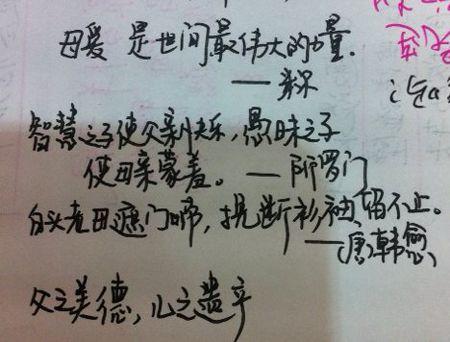 母爱是世间最伟大的力量.
——米尔
智慧之子使父亲快乐,愚昧之子
使母亲蒙羞。——所罗门
白头老母遮门啼,挽断衫袖留不止。
——(唐)韩愈
父之美德,儿之遗产